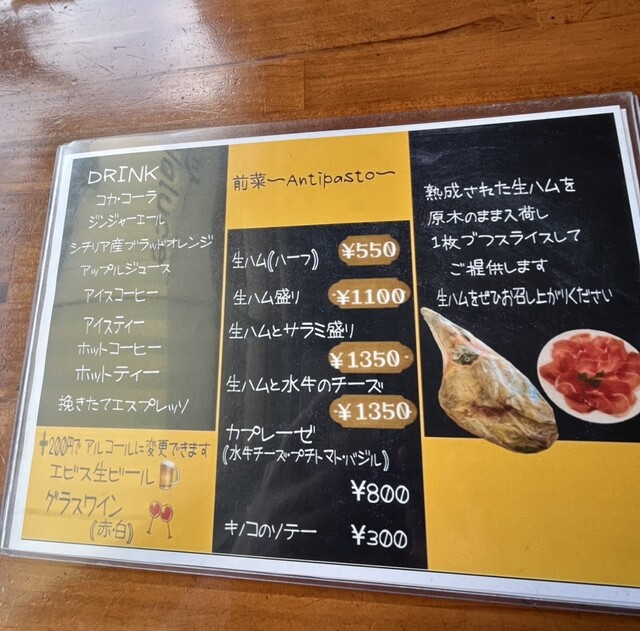 DRINK
コカ・コーラ
ジンジャーエール
シチリア産ブラッドオレンジ
アップルジュース
アイスコーヒー
アイスティー
ホットコーヒー
ホットティー
挽きたてエスプレッソ
+200円でアルコールに変更できます
エビス生ビール
グラスワイン
(赤・白)
前菜〜Antipasto〜
生ハム(ハーフ) ¥550
生ハム盛り ¥1100
生ハムとサラミ盛り
¥1350
生ハムと水牛のチーズ
¥1350
カプレーゼ
(水牛チーズ・プチトマト・バジル)
¥800
キノコのソテー ¥300
熟成された生ハムを
原木のまま入荷し
1枚づつスライスして
ご提供します
生ハムをぜひお召し上がりください